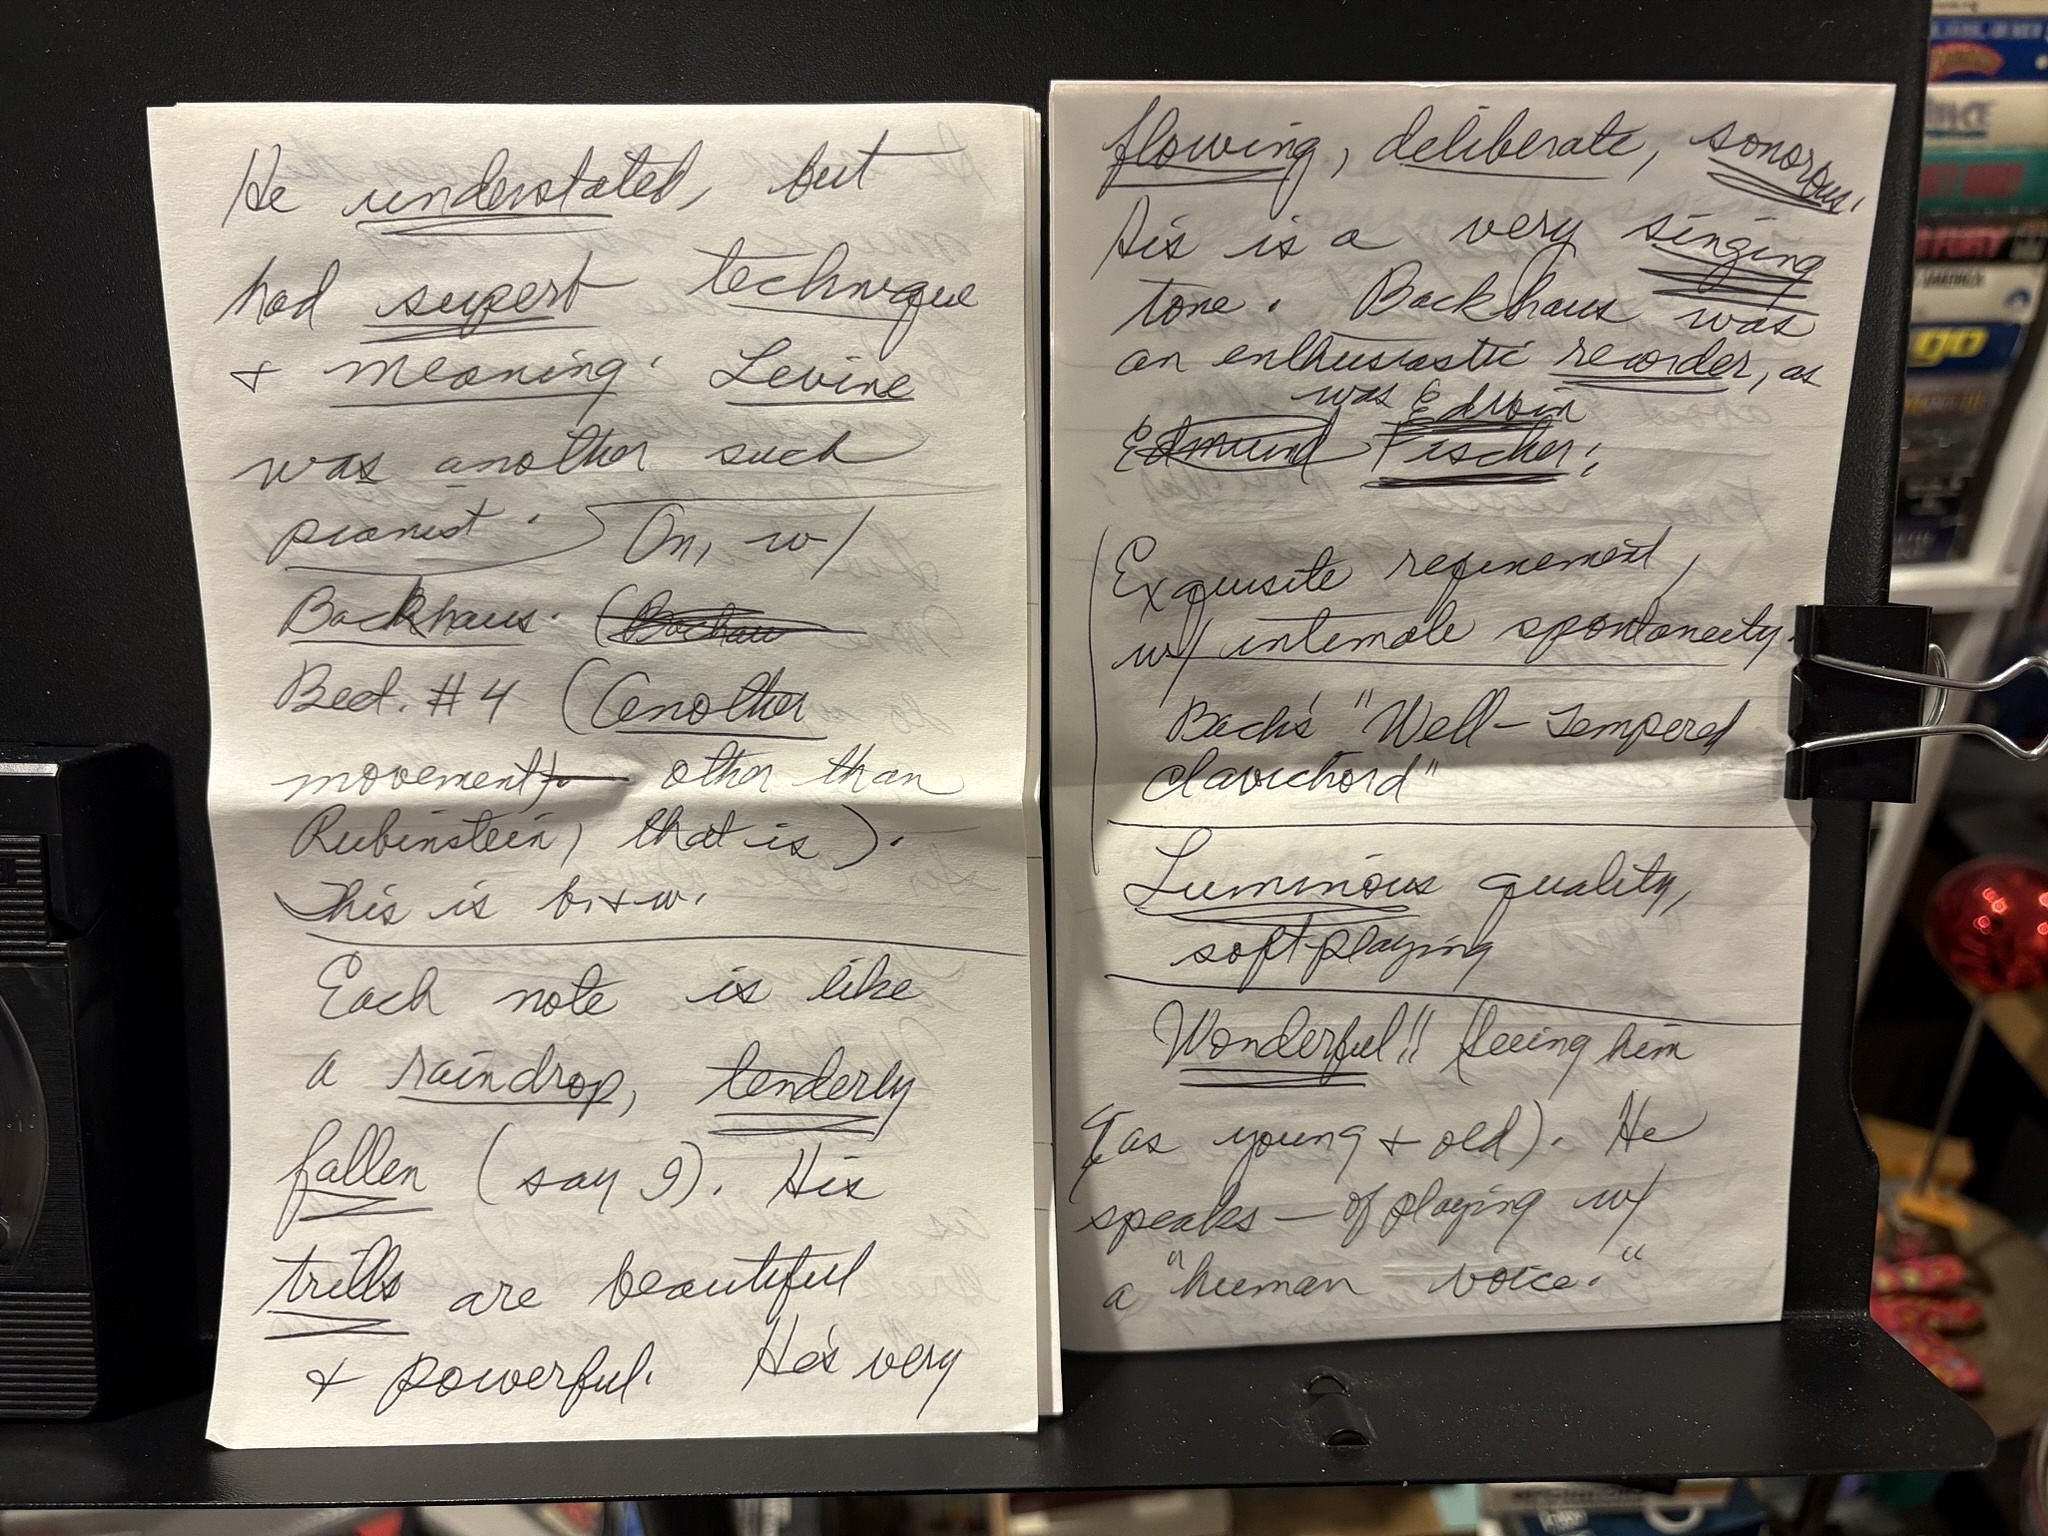 He understated, but
had superb technique
& meaning. Levine
was another such
pianist. On, w/
Backhaus. (Bachau
Beet. #4 (another
movement) other than
Rubinstein, that is).
This is b.+w.
Each note is like
a raindrop, tenderly
fallen (say I). His
trills are beautiful
& powerful. He's very
flowing, deliberate, sonorous.
His is a very singing
tone. Backhaus was
an enthusiastic recorder, as
was Edwin
Edmund Fischer:
Exquisite refinement,
w/ intimate spontaneity.
Bach's "Well-Tempered
Clavichord"
Luminous quality,
soft playing
Wonderful!! (seeing him
(as young + old). He
speaks — of playing w/
a "human voice."
go